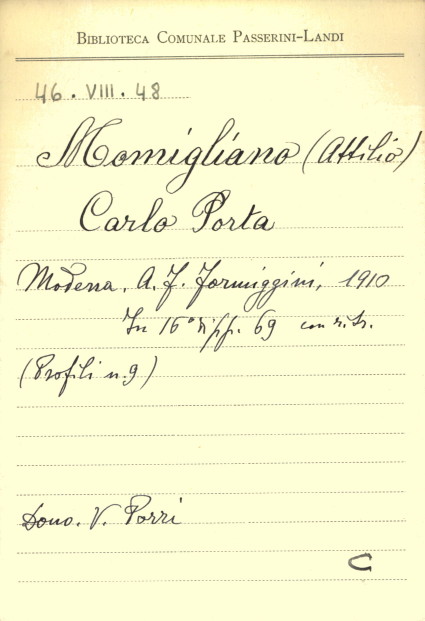 BIBLIOTECA COMUNALE PASSERINI-LANDI
46. VIII. 48
Momigliano (Attilio)
Carlo Porta
Modena. A. F. Formiggini, 1910
In 16° di pp. 69 con ritr.
(Profili n. 9)
Dono. V. Porri
C